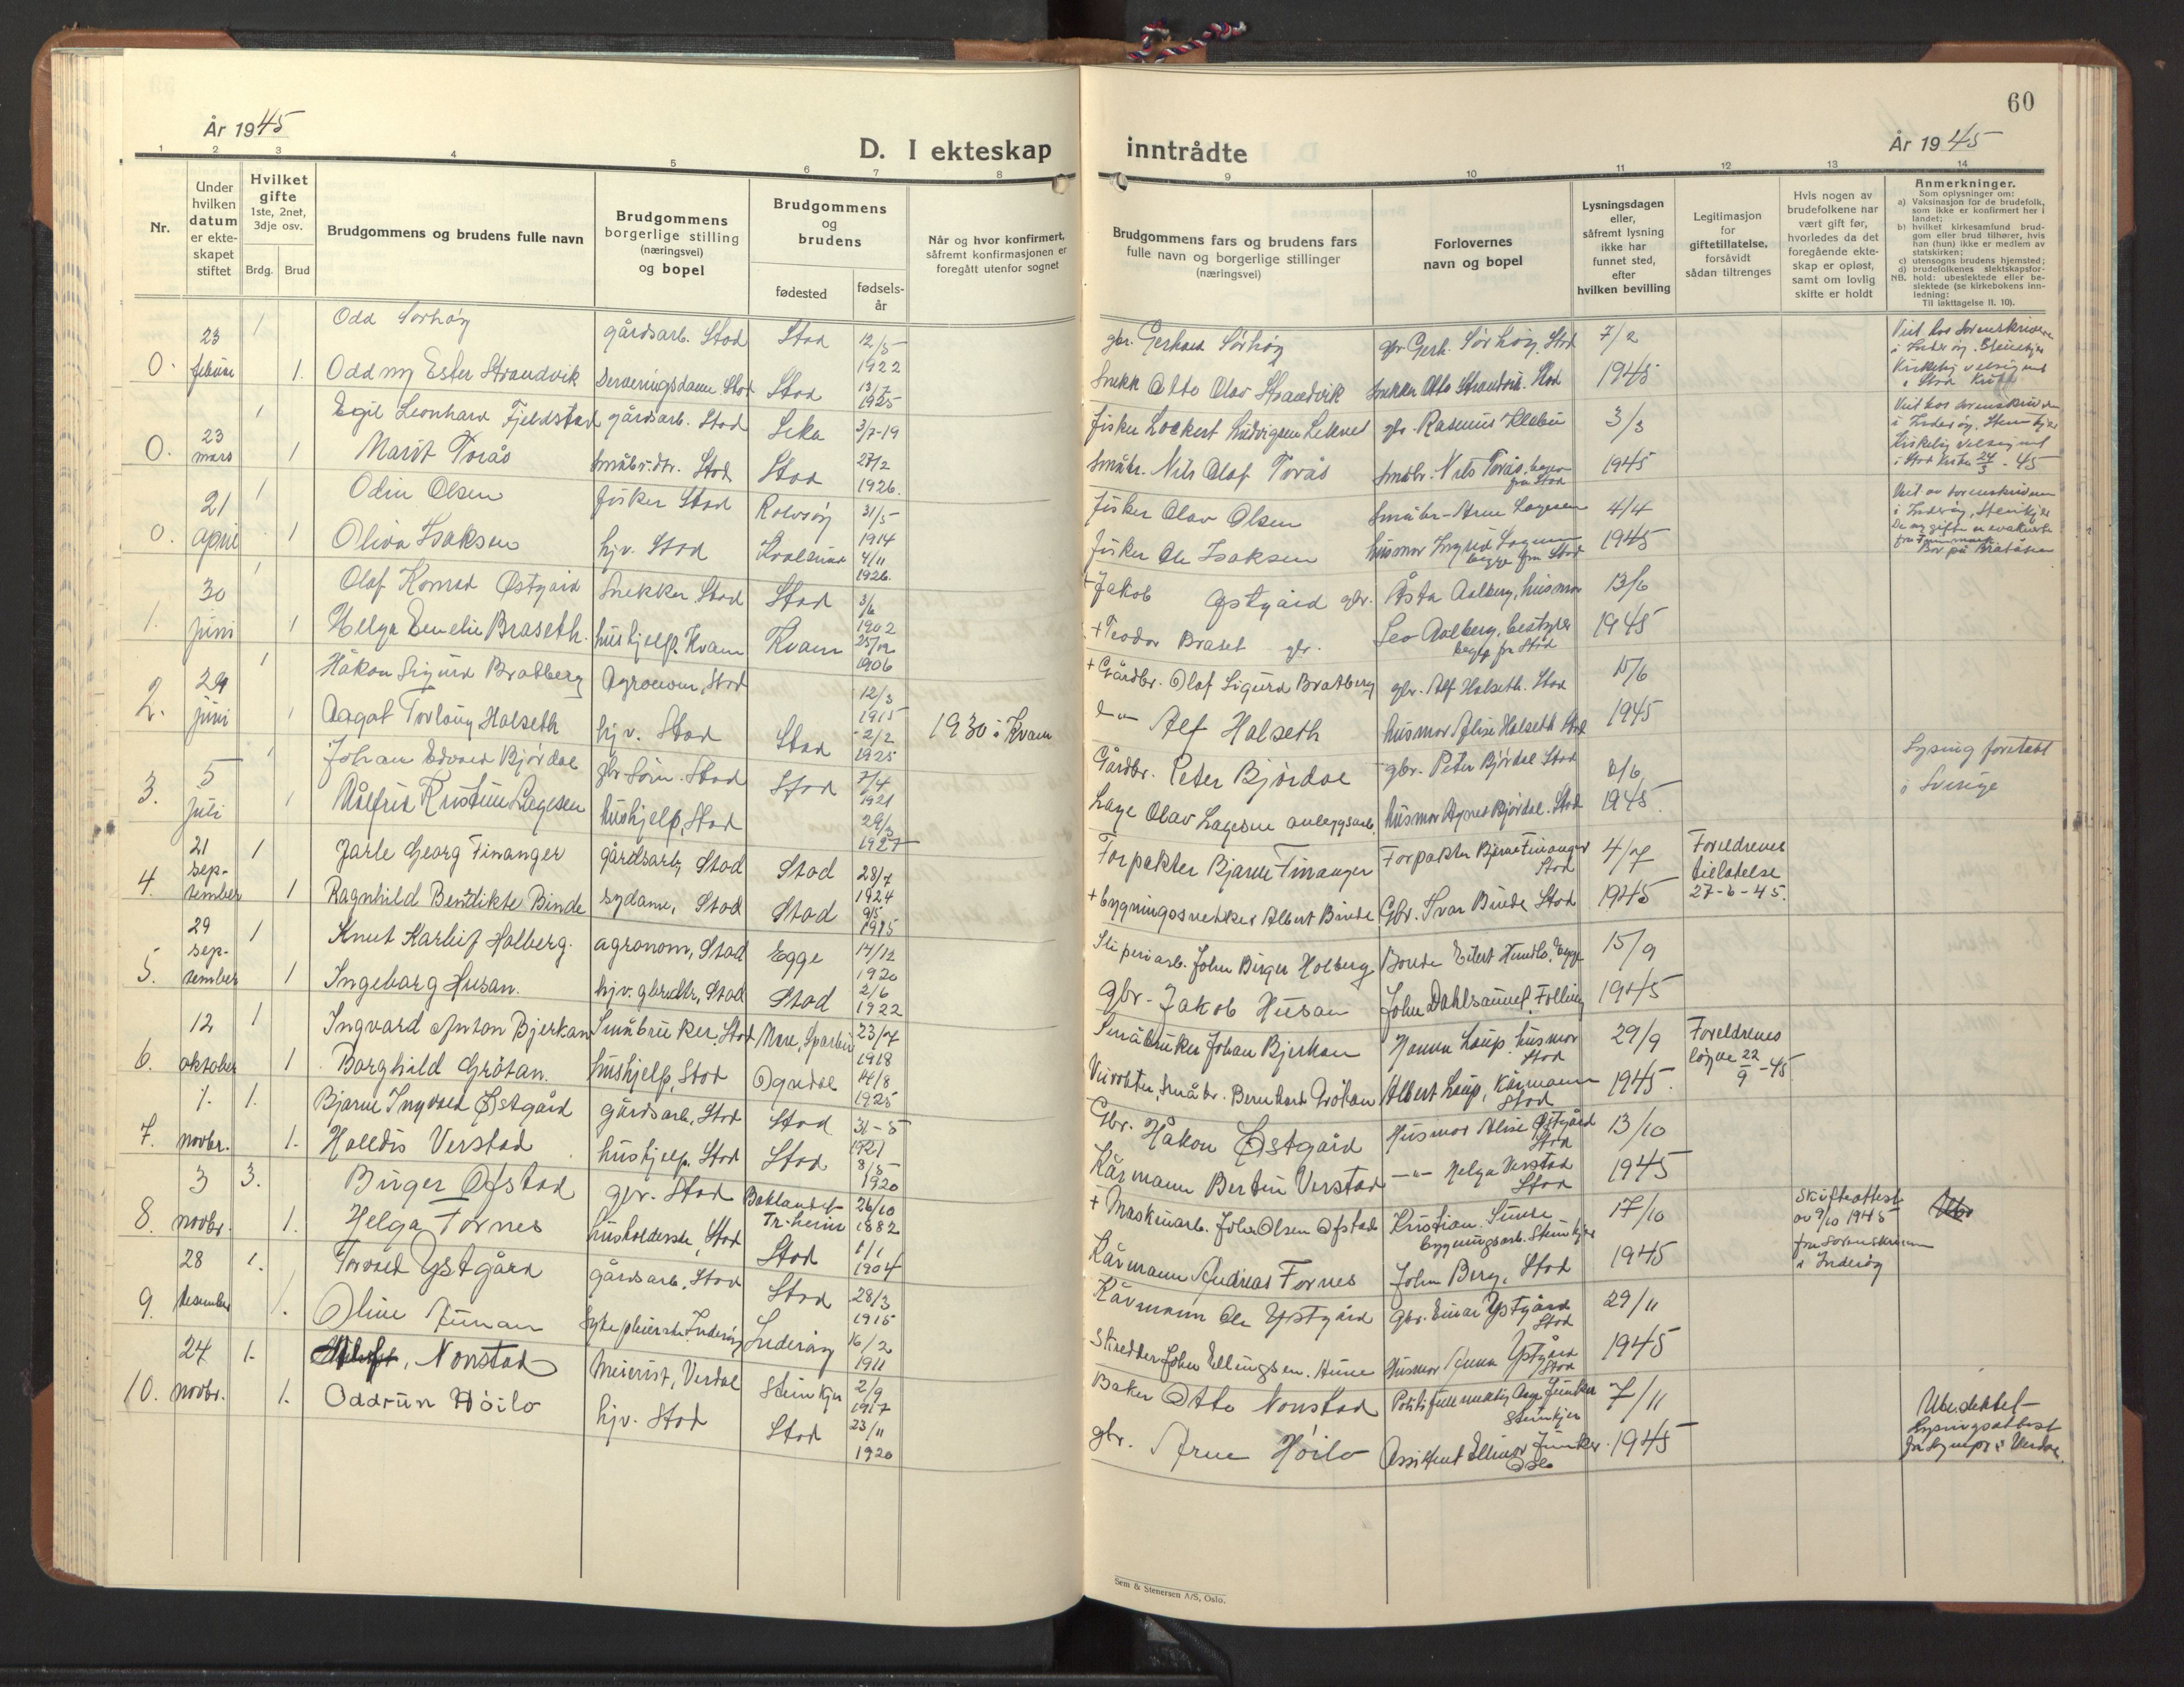 År 1945
D. I ekteskap
1 2 3 4 5 6 7 8
Nr.
Under hvilken datum er ekteskapet stiftet
Hvilket gifte 1ste, 2net, 3dje osv.
Brdg. Brud
Brudgommens og brudens fulle navn
Brudgommens borgerlige stilling (næringsvei) og bopel
Brudgommens og brudens
fødested
fødsels-år
Når og hvor konfirmert, såfremt konfirmasjonen er foregått utenfor sognet
23 1 Odd Sørhøy gårdsarb. Stod Stod 12/5 1922
0. februar 1. Oddny Ester Strandvik Serveringsdame Stod Stod 13/7 1925
1 Egil Leonhard Fjeldstad gårdsarb. Stod Leka 3/7-19
0. 23 mars 1 Marit Torås Småbr.dtr. Stod Stod 27/2 1926.
21 1 Odin Olsen fisker Stod Rolvsøy 31/5 1914
0. april 1 Oliva Isaksen hjv. Stod Kvalsund 4/11 1926.
30 1 Olaf Konrad Østgård Snekker Stod Stod 3/6 1902
1. juni 1 Helga Emelie Braseth. hushjelp. Kvam Kvam 25/12 1906
29 1 Håkon Sigurd Bratberg Agronom, Stod 12/3 1915 1930 i Kvam
2. juni 1 Aagot Torlaug Halseth hjv. Stod Stod 2/2 1925
5 1 Johan Edvard Bjørdal gbr.sønn. Stod Stod 7/4 1921
3. juli 1 Ålfrid Kristine Lagesen hushjelp, Stod 29/3 1927
21 sep- 1 Jarle Georg Finanger gårdsarb, Stod Stod 28/7 1924
4. tember 1 Ragnhild Bendikte Binde sydame, Stod Stod 9/5 1925
29 sep- 1 Knut Karleif Holberg. agronom, Stod Egge 14/12 1920
5. tember 1 Ingeborg Husan. hjv. gbrdtr, Stod Stod 2/6 1922
12 1 Ingvard Anton Bjerkan Småbruker, Stod Mære, Sparbu 23/7 1918
6. oktober 1 Borghild Grøtan. hushjelp, Stod Ogndal 14/8 1925
1. 1. Bjarne Ingvald Østgård gårdsarb, Stod Stod 31-5 1921
7. novbr. 1. Halldis Verstad hushjelp, Stod Stod 8/5 1920
3 3. Birger Øfstad gbr. Stod Baklandet Tr.heim 26/10 1882
8. novbr. 1. Helga Fornes husholderske, Stod Stod 1/1 1904
28 1. Torvald Ystgård gårdsarb, Stod Stod 28/3 1915
9. desember 1. Oline Aunan Sykepleierske, Inderøy Inderøy 16/2 1911
24 1. Nonstad Meierist, Verdal Steinkjer 2/9 1917
10. novbr. 1. Oddrun Høilo hjv. Stod Stod 23/11 1920
60
inntrådte
År 1945
9 10 11 12 13 14
Brudgommens fars og brudens fars fulle navn og borgerlige stillinger (næringsvei)
Forlovernes navn og bopel
Lysningsdagen eller, såfremt lysning ikke har funnet sted, efter hvilken bevilling
Legitimasjon for giftetillatelse, forsåvidt sådan tiltrenges
Hvis nogen av brudefolkene har vært gift før, hvorledes da det foregående ekteskap er opløst, samt om lovlig skifte er holdt
Anmerkninger.
Som oplysninger om:
a) Vaksinasjon for de brudefolk, som ikke er konfirmert her i landet;
b) hvilket kirkesamfund brudgom eller brud tilhører, hvis han (hun) ikke er medlem av statskirken;
c) utensogns brudens hjemsted;
d) brudefolkenes slektskapsforhold: ubeslektede eller beslektede (se kirkebokens innledning:
NB. Til iakttagelse II. 10).
gbr. Gerhard Sørhøy gbr. Gerh. Sørhøy, Stod 7/2 Viet hos Sorenskriveren i Inderøy. Steinkjer
Snekk Otto Olav Strandvik Snekker Otto Strandvik. Stod 1945 Kirkelig velsignet i Stod Kirke
fisker Lockert Ludvigsen Leknes gbr. Rasmus Klebu 3/3 Viet hos Sorenskriveren i Inderøy, Steinkjer
Småbr. Nils Olaf Torås Småbr. Nils Torås, begge fra Stod 1945 Kirkelig velsignet i Stod Kirke 24/3-45
fisker Olav Olsen Småbr. Arne Lagesen 4/4 Viet av Sorenskriveren i Inderøy, Steinkjer
fisker Ole Isaksen husmor Ingrid Lagesen begge fra Stod 1945 De nygifte er evakuert fra Finnmark. Bor på Bråtåsen
+ Jakob Østgård gbr. Åsta Aalberg, husmor 13/6
+ Teodor Braset gbr. Leo Aalberg, bestyrer begge fra Stod 1945
+ Gårdbr. Olaf Sigurd Bratberg gbr. Alf Halseth. Stod 15/6
Alf Halseth husmor Alise Halseth Stod 1945
Gårdbr. Peter Bjørdal gbr. Peter Bjørdal Stod 8/6 Lysing foretatt i Sverige
Lage Olav Lagesen anleggsarb. husmor Agnes Bjørdal. Stod 1945.
Forpakter Bjarne Finanger Forpakter Bjarne Finanger Stod 4/7 Foreldrenes tillatelse 27-6-45.
+ bygningssnekker Albert Binde Gbr. Ivar Binde, Stod 1945
Sliperiarb. John Birger Holberg Bonde Eilert Hundlo, Egge 15/9
gbr. Jakob Husan John Dahlsaunet, Følling 1945
Småbruker Johan Bjerkan Hanna Laup, husmor Stod 29/9 Foreldrenes løyve 22/9-45
Veivokter, småbr. Bernhard Grøtan Albert Laup, Kårmann Stod 1945.
Gbr. Håkon Østgård Husmor Alise Østgård Stod 13/10
Kårmann Bertin Verstad —"— Helga Verstad Stod 1945
+ Maskinarb. John Olsen Øfstad Kristian Sunde bygningsarb. Steinkjer 17/10 Skifteattest av 9/10 1945 fra Sorenskriveren i Inderøy
Kårmann Andreas Fornes John Berg, Stod 1945
Kårmann Ole Ystgård Gbr. Einar Ystgård Stod 29/11
Skredder John Ellingsen Aune Husmor Anna Ystgård Stod 1945
Baker Otto Nonstad Politifullmektig Aage Junker Steinkjer 7/11 Ubeslektet— Lysningsattest fra Sognepr. i Verdal.
gbr. Arne Høilo Assistent Ellinor Junker Oslo 1945
Sem & Stenersen A/S, Oslo.